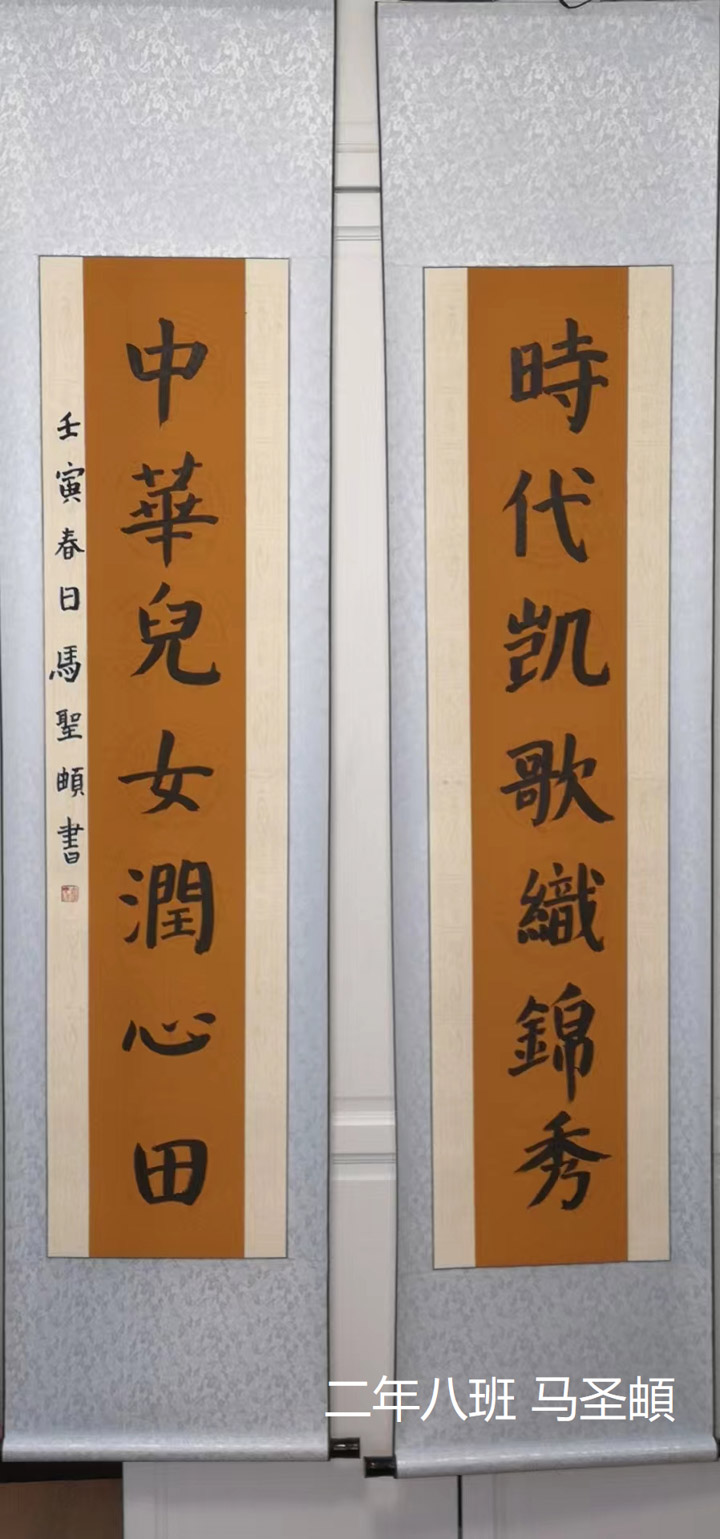 時代凯歌織錦秀
中華兒女潤心田
壬寅春日馬聖頔書
二年八班 马圣頔